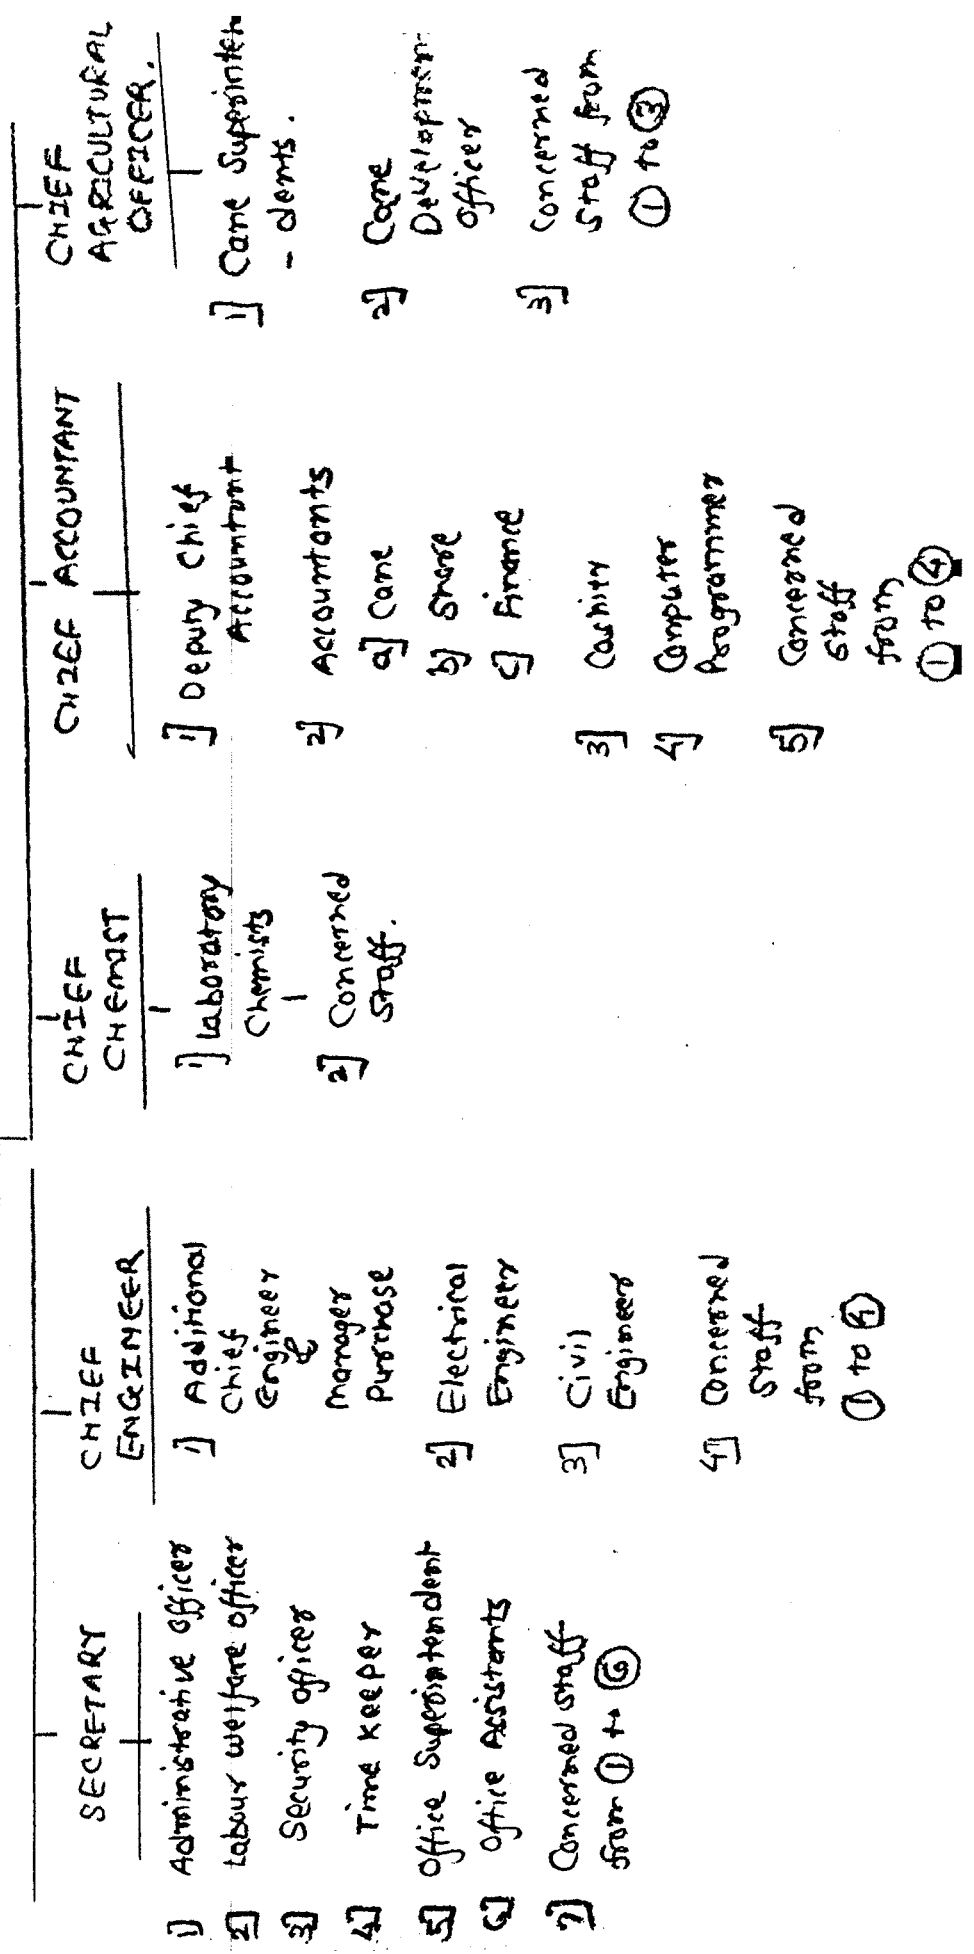 SECRETARY
1] Administrative officer
2] Labour welfare officer
3] Security officer
4] Time Keeper
5] Office Superintendent
6] Office Assistants
7] Concerned staff
from ① to ⑥
CHIEF
ENGINEER
1] Additional
Chief
Engineer
&
Manager
Purchase
2] Electrical
Engineer
3] Civil
Engineer
4] Concerned
Staff
from
① to ④
CHIEF
CHEMIST
1] Laboratory
Chemists
2] Concerned
Staff.
CHIEF ACCOUNTANT
1] Deputy Chief
Accountant
2] Accountants
a] Cane
b] Share
c] Finance
3] Cashier
4] Computer
Programmer
5] Concerned
Staff
from
① to ④
CHIEF
AGRICULTURAL
OFFICER.
1] Cane Superinten
- dents.
2] Cane
Developmen
Officer
3] Concerned
Staff from
① to ③